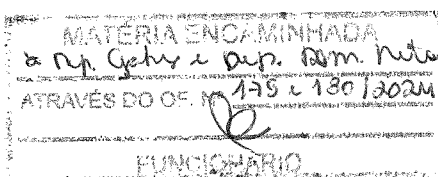 MATÉRIA ENCAMINHADA
a Dep. e Dep. Dom. Neto
ATRAVÉS DO OF. Nº 179 e 180/2024
FUNCIONÁRIO